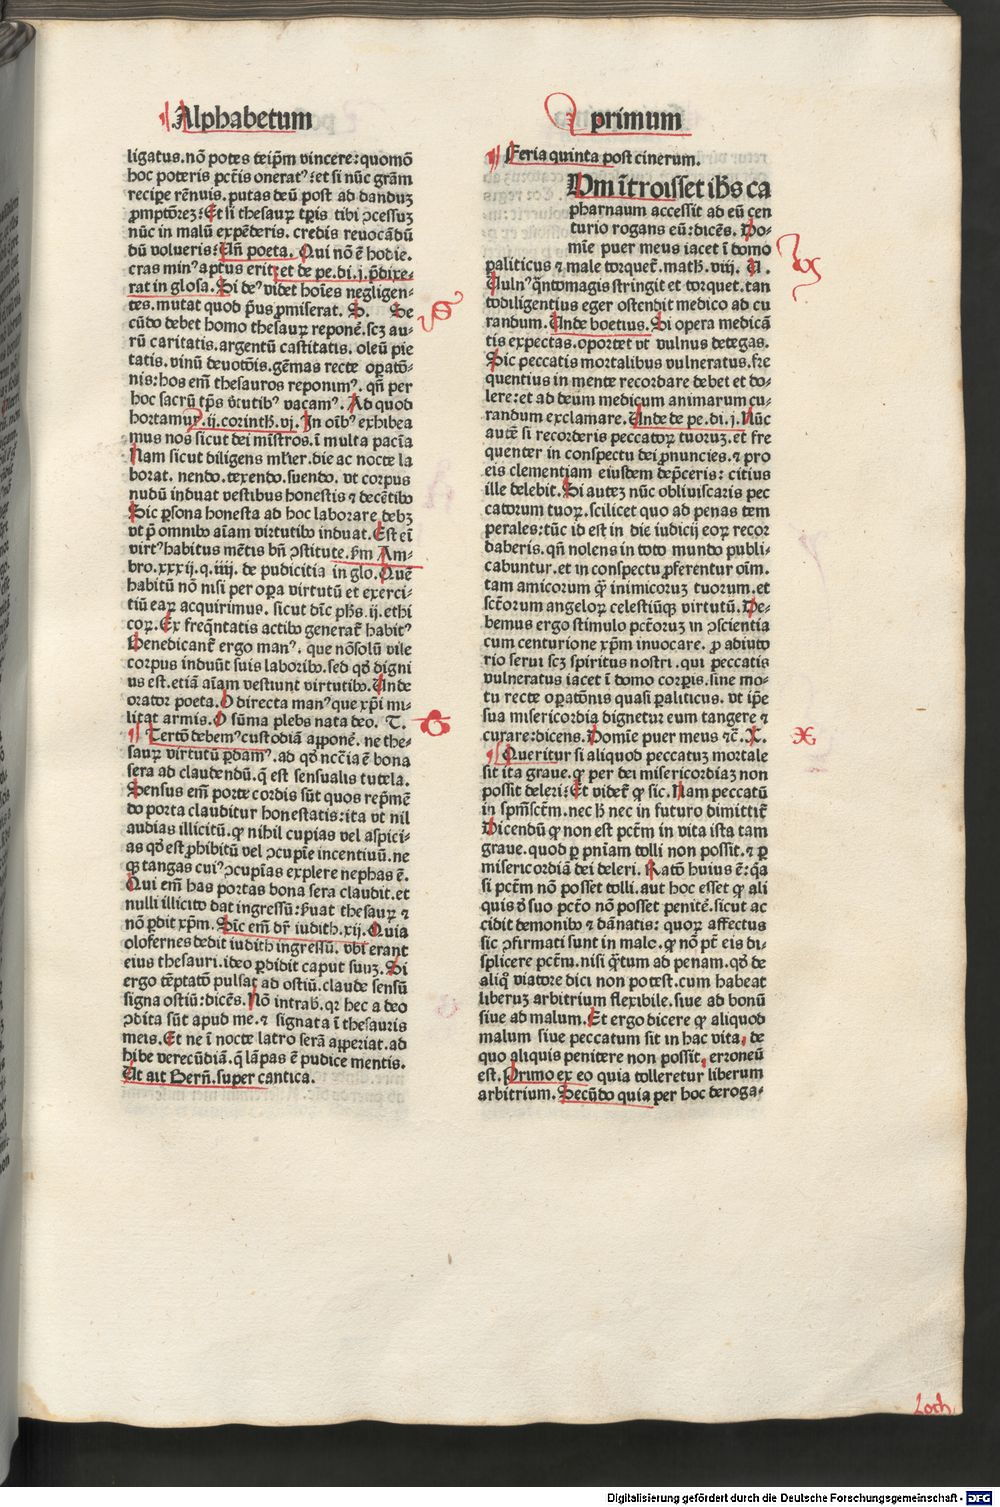 Alphabetum
ligatus.nō potes teip̄m vincere:quomō
hoc poteris pct̄is onerat⁹:et si nūc grām
recipe rēnuis.putas deū post ad danduȝ
ꝓmptōreȝ:Et si thesauꝝ tp̄is tibi ↄcessuȝ
nūc in malū expēderis.credis reuocādū
dū volueris:Uñ poeta. Qui nō ē hodie.
cras min⁹ aptus erit:et de pe.di.j.p̄dixe⸗
rat in glosa.Si de⁹ videt hoīes negligen⸗
tes.mutat quod p̄us ꝓmiserat. S. Se
cūdo debet homo thesauꝝ reponē.scȝ au⸗
rū caritatis.argentū castitatis.oleū pie
tatis.vinū deuotōis.gēmas recte oꝑatō⸗
nis:hos em̄ thesauros reponim⁹.qñ per
hoc sacrū tp̄s v̓tutib⁹ vacam⁹.Ad quod
hortamur.ij.corinth.vj.In oīb⁹ exhibea
mus nos sicut dei mīstros.ī multa pacīa
Nam sicut diligens ml̓ier.die ac nocte la
borat.nendo.texendo.suendo.vt corpus
nudū induat vestibus honestis ⁊ decētibꝰ
Sic ꝑsona honesta ad hoc laborare debȝ
vt p̄ omnibꝰ aīam virtutibꝰ induat.Est eī
virt⁹ habitus mētis bñ ↄstitute.ẜm Am⸗
bro.xxxij.q.iiij. de pudicitia in glo.Quē
habitū nō nisi per oꝑa virtutū et exerci⸗
tiū eaꝝ acquirimus.sicut dīc ph̄s.ij.ethi
coꝝ.Ex freq̄ntatis actibꝰ generat̄ habit⁹
Benedicant̄ ergo man⁹. que nōsolū vile
corpus induūt suis laboribꝰ.sed qd̓ digni
us est.etiā aīam vestiunt virtutibꝰ.Unde
orator poeta.O directa man⁹ que xp̄i mi⸗
litat armis.O sūma plebs nata deo. T.
¶ Tertō debem⁹ custodiā apponē. ne the⸗
sauꝝ virtutū ꝑdam⁹.ad qd̓ nccīa ē bona
sera ad claudendū.q̄ est sensualis tutela.
Sensus em̄ porte cordis sūt quos rep̄mē
do porta clauditur honestatis:ita vt nil
audias illicitū.qꝫ nihil cupias vel aspici⸗
as qd̓ est ꝓhibitū vel ↄcupīe incentiuū.ne
qꝫ tangas cui⁹ ↄcupīas explere nephas ē.
Qui em̄ has portas bona sera claudit.et
nulli illicito dat ingressū:ẜuat thesauꝝ ⁊
nō ꝑdit xp̄m. Sīc em̄ dr̄ iudith.xij.Quia
olofernes dedit iudith ingressū. vbi erant
eius thesauri.ideo ꝑdidit caput suuȝ.Si
ergo tēptatō pulsat ad ostiū.claude sensū
signa ostiū:dicēs.Nō intrab̓.qꝛ hec a deo
ↄdita sūt apud me.⁊ signata ī thesauris
meis.Et ne ī nocte latro serā aꝑperiat.ad
hibe verecūdiā.q̄ lāpas ē pudice mentis.
Ut ait Berñ.super cantica.
primum
¶ Feria quinta post cinerum.
Dm̄ ītroisset ih̄s ca
pharnaum accessit ad eū cen
turio rogans eū:dicēs. Do⸗
mīe puer meus iacet ī domo
paliticus ⁊ male torquet̄.math̄.viij. U.
Uuln⁹ q̄ntomagis stringit et torquet.tan
todiligentius eger ostendit medico ad cu
randum.Unde boetius.Si opera medicā
tis expectas.oportet vt vulnus detegas.
Sic peccatis mortalibus vulneratus.fre
quentius in mente recordare debet et do⸗
lere:et ad deum medicum animarum cu⸗
randum exclamare.Unde de pe.di.j.Nūc
autē si recorderis peccatoꝝ tuoruȝ.et fre
quenter in conspectu dei ꝓnuncies.⁊ pro
eis clementiam eiusdem dep̄ceris: citius
ille delebit.Si auteȝ nūc obliuiscaris pec
catorum tuoꝝ.scilicet quo ad penas tem
perales:tūc id est in die iudicij eoꝝ recor
daberis.qñ nolens in toto mundo publi⸗
cabuntur.et in conspectu ꝓferentur oīm.
tam amicorum qꝫ inimicoruȝ tuorum.et
sct̄orum angeloꝝ celestiūqꝫ virtutū.De⸗
bemus ergo stimulo pct̄oruȝ in ↄscientia
cum centurione xp̄m inuocare. ꝓ adiuto
rio serui scȝ spiritus nostri.qui peccatis
vulneratus iacet ī domo corꝑis.sine mo⸗
tu recte oꝑatōnis quasi ꝑaliticus. vt ip̄e
sua misericordia dignetur eum tangere ⁊
curare:dicens.Domīe puer meus ⁊c̄. X.
¶ Queritur si aliquod peccatuȝ mortale
sit ita graue.qꝫ per dei misericordiaȝ non
possit deleri:Et videt̄ qꝫ sic.Nam peccatū
in spm̄sct̄m.nec h̄ nec in futuro dimittit̄
Dicendū qꝫ non est pct̄m in vita ista tam
graue.quod ꝑ pn̄iam tolli non possit.⁊ ꝑ
misericordiā dei deleri. Ratō huius ē:q̄a
si pct̄m nō posset tolli.aut hoc esset qꝫ ali
quis d̓ suo pct̄o nō posset penitē.sicut ac
cidit demonibꝰ ⁊ dānatis: quoꝝ affectus
sic ↄfirmati sunt in malo.qꝫ nō pt̄ eis di⸗
splicere pct̄m.nisi qꝫtum ad penam.qd̓ de
aliq̊ viatore dici non potest.cum habeat
liberuȝ arbitrium flexibile.siue ad bonū
siue ad malum.Et ergo dicere qꝫ aliquod
malum siue peccatum sit in hac vita, de
quo aliquis penitere non possit, erroneū
est.Primo ex eo quia tolleretur liberum
arbitrium.Secūdo quia per hoc deroga⸗
Loch
Digitalisierung gefördert durch die Deutsche Forschungsgemeinschaft - DFG